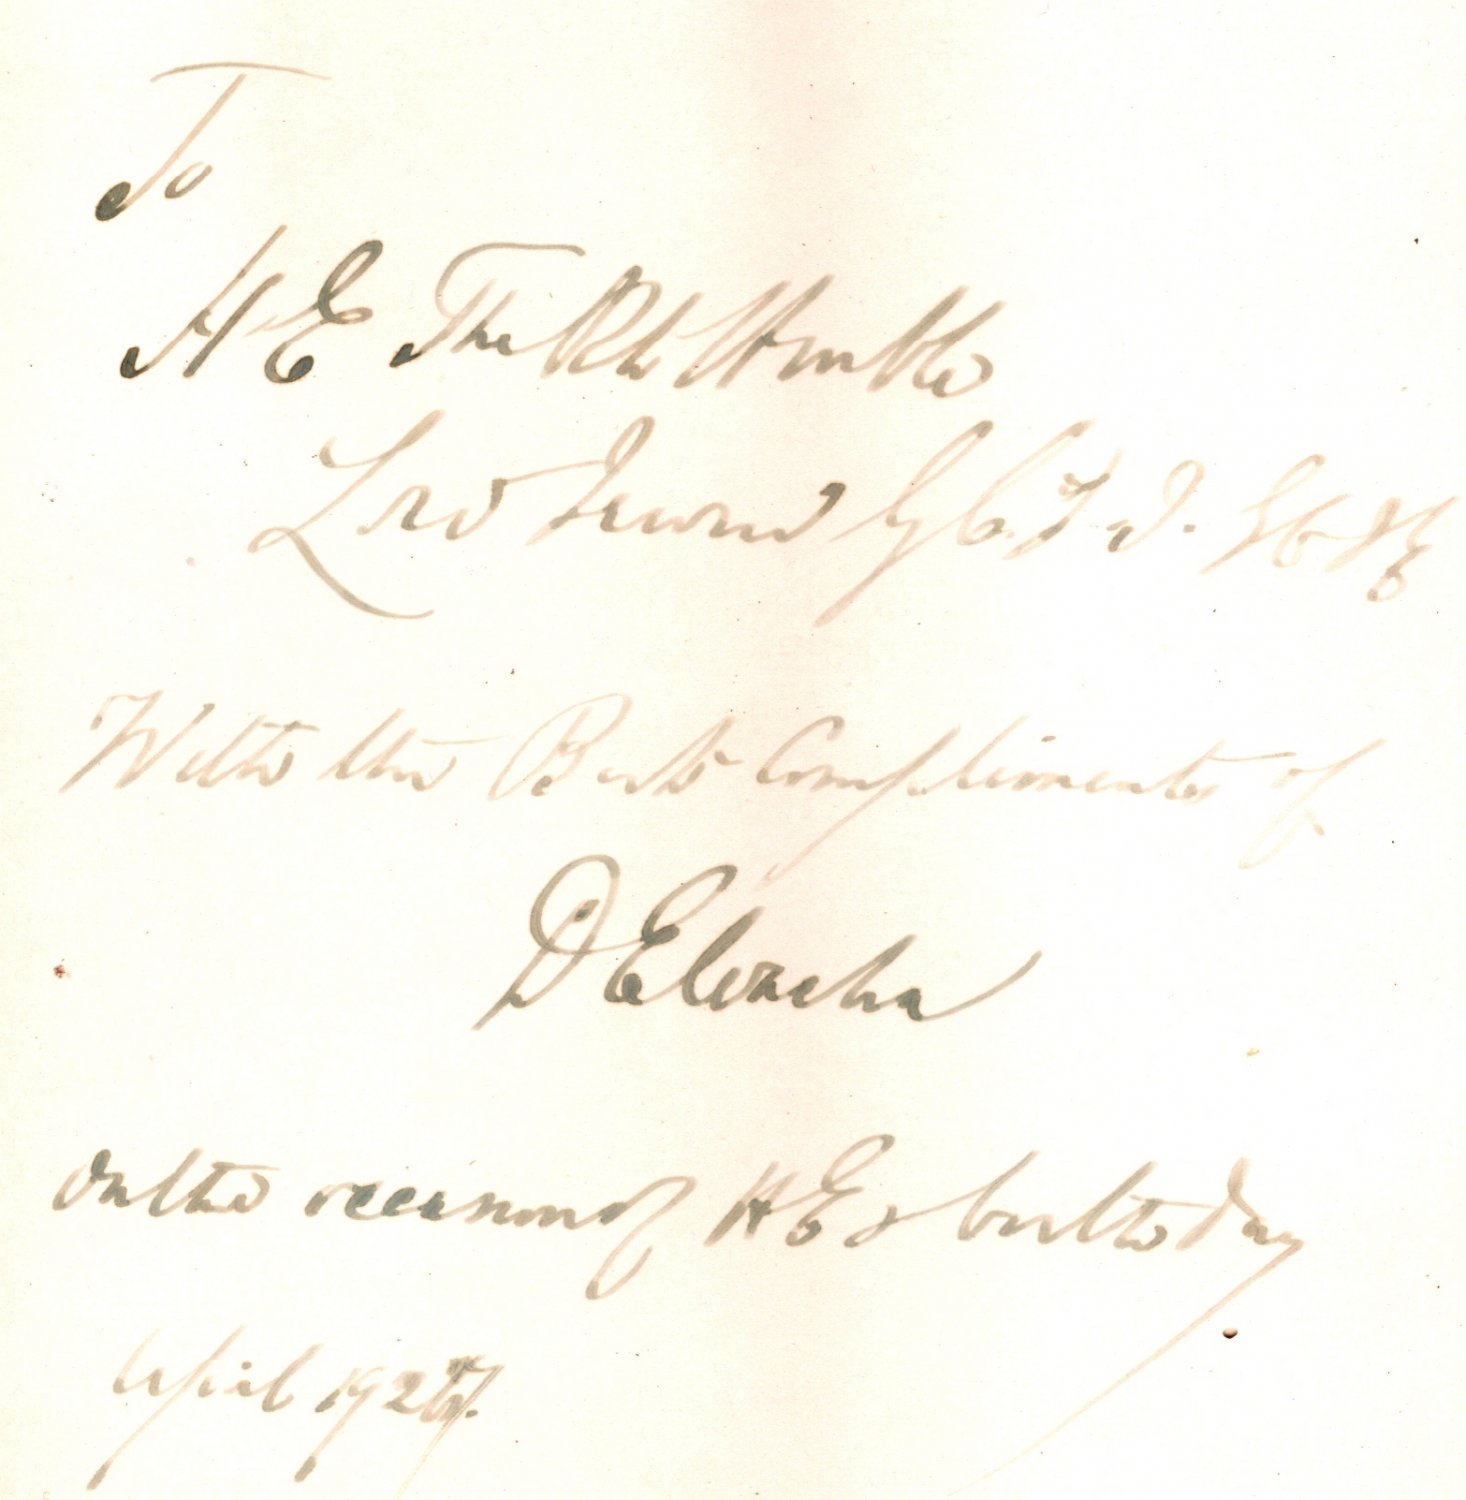 To
H E The Rt Honble
Lord Irwin G C. S. I. G C I E
With the Best Compliments of
D
on the occasion of H Es birthday
April 1927.